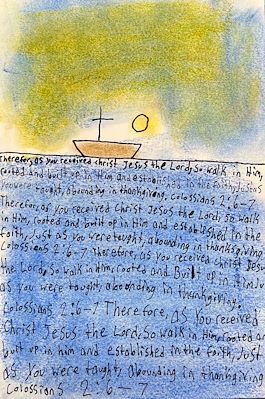 Therefore, as you received christ Jesus the Lord, So walk in Him,
rooted and built up in Him and established in the faith, Just as
you were taught, abounding in thanksgiving. Colossians 2:6-7
Therefore, as you received Christ Jesus the Lord, so walk
in Him, rooted and built up in Him and established in the
faith, Just as you were taught, abounding in thanksgiving.
Colossians 2:6-7 Therefore, as you received Christ Jesus
the Lord, So walk in Him, rooted and Built up in Him Ju
as you were taught, abounding in thanksgiving.
Colossians 2:6-7 Therefore, as you received
Christ Jesus the Lord, So walk in Him, rooted and
built up in him and established in the faith, Just
as you were taught, abounding in thanksgiving
Colossians 2:6-7